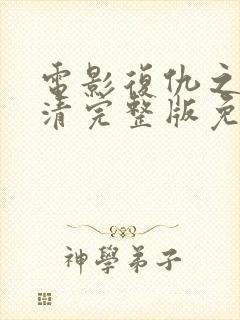 電影復仇之
清完整版免
神學弟子